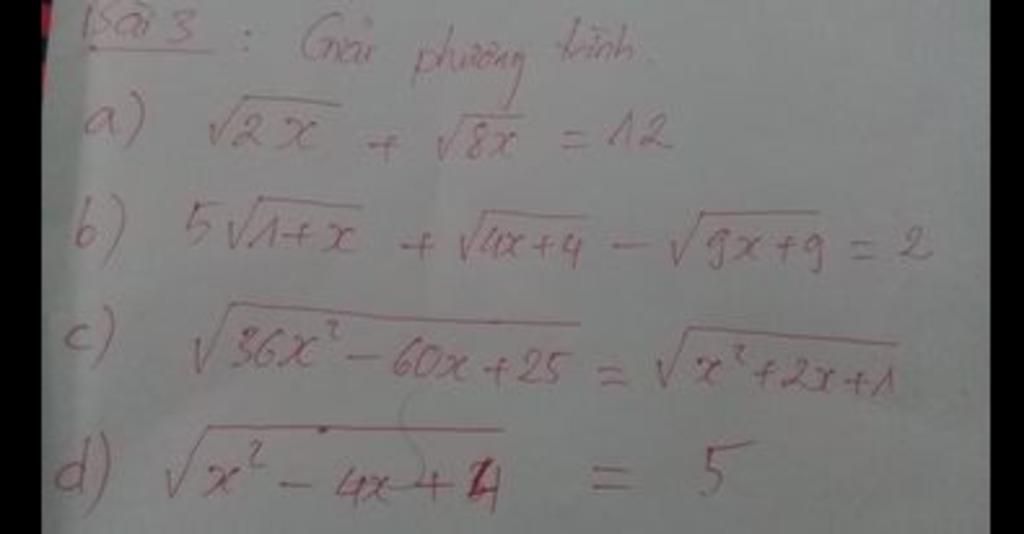 Bài 3 : Giải phương trình.
a) √2x + √8x = 12
b) 5√1+x + √4x+4 - √9x+9 = 2
c) √36x² - 60x + 25 = √x² + 2x + 1
d) √x² - 4x + 4 = 5